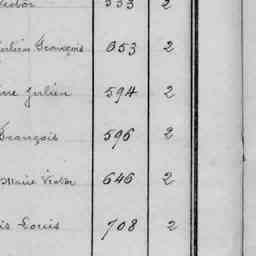 Victor 553 2
François 653 2
Julien 594 2
François 596 2
Marie Victor 646 2
Louis 708 2